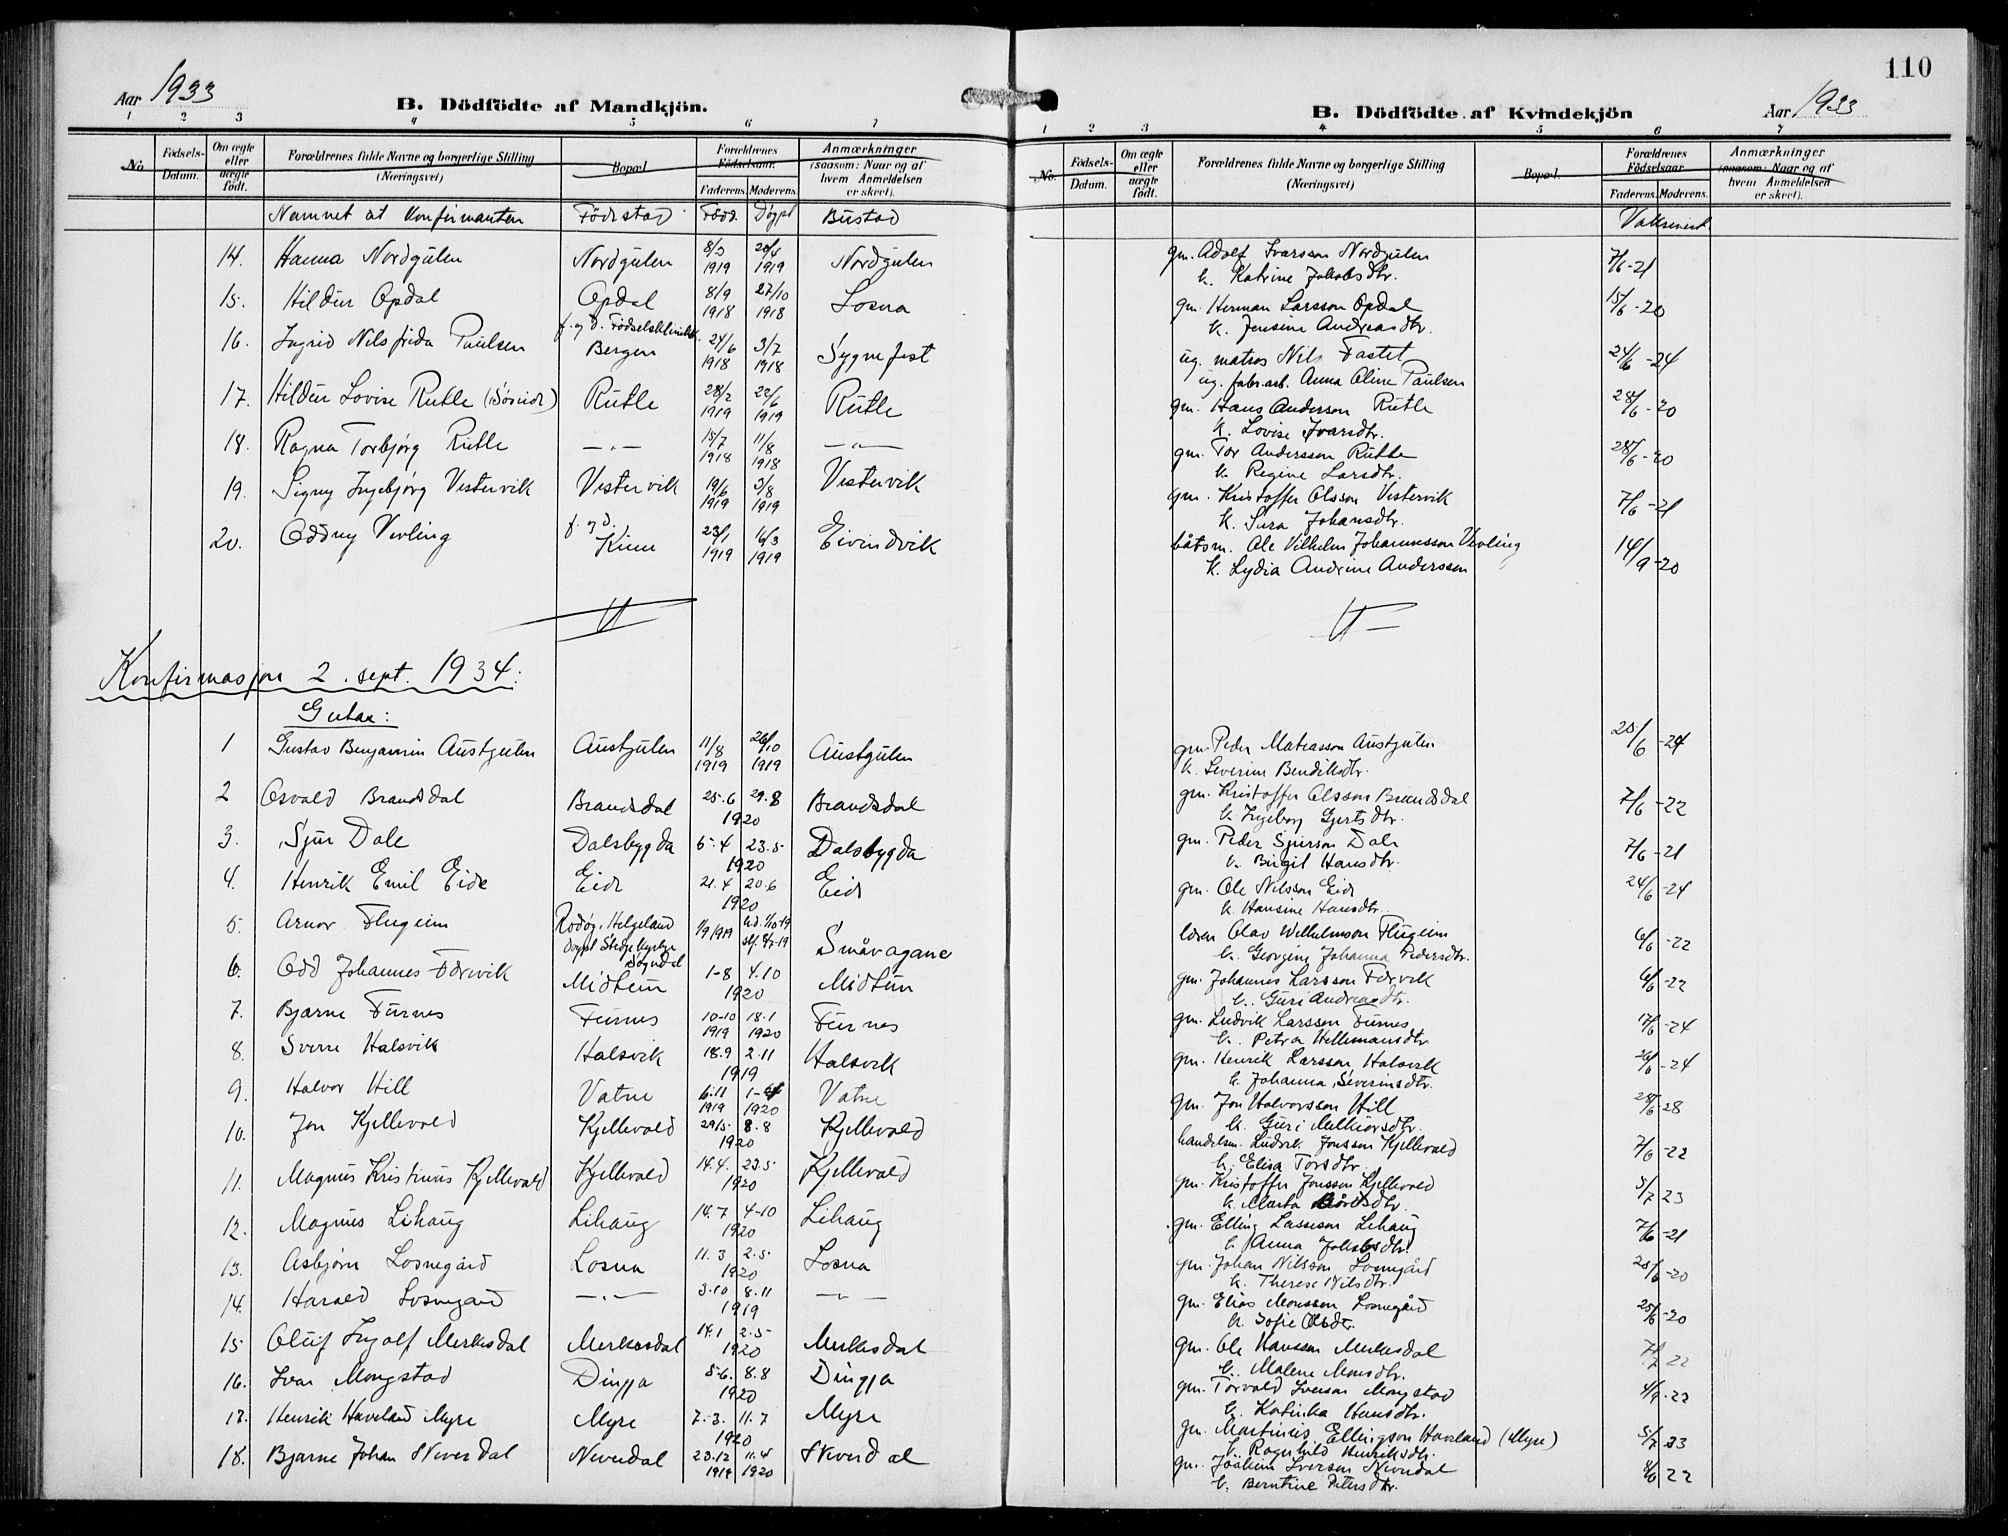 Aar 1933
B. Dödfödte af Mandkjön.
1 2 3 4 5 6 7
No. Födsels-Datum. Om ægte eller uægte födt. Forældrenes fulde Navne og borgerlige Stilling (Næringsvei) Bopæl. Forældrenes Födselsaar. Faderens. Moderens. Anmærkninger (saasom: Naar og af hvem Anmeldelsen er skeet).
Namnet åt Konfirmanten Födestad Född. Döypt Bustad
14. Hanna Nordgulen Nordgulen 8/3 1919 20/4 1919 Nordgulen
15. Hildur Opdal Opdal 8/9 1918 27/10 1918 Losna
16. Ingrid Nilsfrida Paulsen f. og d. Fødselsklinikk. Bergen 24/6 1918 3/7 1918 Sygnefest
17. Hildur Lovise Rutle Rutle 28/2 1919 22/6 1919 Rutle
18. Ragna Torbjørg Rutle —"— 15/7 1918 11/8 1918 —"—
19. Signy Ingebjørg Vestervik Vestervik 19/6 1919 3/8 1919 Vestervik
20. Oddny Verling f. og d. Kinn 23/1 1919 16/3 1919 Eivindvik
Konfirmasjon 2. sept. 1934:
Gutar:
1 Gustav Benjamin Austgulen Austgulen 11/8 1919 26/10 1919 Austgulen
2 Osvald Brandsdal Brandsdal 25.6 29.8 1920 Brandsdal
3. Sjur Dale Dalsbygda 5.4 23.5 1920 Dalsbygda
4. Henrik Emil Eide Eide 21.4 20.6 1920 Eide
5. Arnor Flugeim Rødøy, Helgeland 1/9 1919 Småvagane
6. Odd Johannes Færevik Midtun 1-8 4.10 1920 Midtun
7. Bjarne Furnes Furnes 10-10 1919 18.1 1920 Furnes
8. Sverre Halsvik Halsvik 18.9 2.11 1919 Halsvik
9. Halvor Hill Vatne 6.11 1919 1920 Vatne
10. Jon Kjellevold Kjellevold 29/5. 8.8 1920 Kjellevold
11. Magnus Kristinus Kjellevold Kjellevold 14.4. 23.5 1920 Kjellevold
12. Magnus Lihaug Lihaug 14.7 4-10 1920 Lihaug
13. Asbjørn Losnegård Losna 11.3 2.5 1920 Losna
14. Harald Losnegård —"— 3.10 8.11 1919 —"—
15 Oluf Ingolf Merkesdal Merkesdal 14.1 2.5 1920 Merkesdal
16. Ivar Mongstad Dingja 5-6. 8.8 1920 Dingja
17. Henrik Haveland Myre Myre 7.-3. 11.7 1920 Myre
18. Bjarne Johan Neverdal Neverdal 23.12 1919 11.4 1920 Neverdal
110
B. Dödfödte af Kvindekjön
Aar 1933
1 2 3 4 5 6 7
No. Födsels-Datum. Om ægte eller uægte födt. Forældrenes fulde Navne og borgerlige Stilling (Næringsvei) Bopæl. Forældrenes Födselsaar. Faderens. Moderens. Anmærkninger (saasom: Naar og af hvem Anmeldelsen er skeet).
gm. Adolf Ivarsson Nordgulen 7/6-21
k. Katrine Jakobsdtr.
gm. Herman Larsson Opdal 15/6-20
k. Jensine Andreasdtr.
ug. matros Nils Fastet 24/6-24
ug. fabr.arb. Anna Oline Paulsen
gm. Hans Andersson Rutle 28/6-20
k. Lovise Ivarsdtr.
gm. Tor Andersson Rutle 28/6-20
k. Regine Larsdtr.
gm. Kristoffer Olsson Vestervik 7/6-21
k. Sura Johansdtr.
båtsm. Ole Vilhelm Johannesson Verling 14/9-20
k. Lydia Andrine Anderssen
gm. Peder Matiasson Austgulen 25/6-24
k. Severine Bendiksdtr.
gm. Kristoffer Olsson Brandsdal 7/6-22
k. Ingeborg Gjertsdtr.
gm. Peder Sjurson Dale 7/6-21
k. Birgit Hansdtr.
gm. Ole Nilsson Eide 24/6-24
k. Hansine Hansdtr.
Olav Wilhelmson Flugeim 6/6-22
k. Georgine Johanna Pedersdtr.
gm. Johannes Larsson Færevik 6/6-22
k. Guri Andreasdtr.
gm. Ludvik Larsson Furnes 17/6-24
k. Petra Hellemansdtr.
gm. Henrik Larsson Halsvik 26/6-24
k. Johanna Severinsdtr.
gm. Jon Halvorsson Hill 28/6-28
k. Guri Melkiorsdtr.
handelsm. Ludvik Jonsson Kjellevold 7/6-22
k. Elisa Torsdtr.
gm. Kristoffer Jonsson Kjellevold 5/7 23
k. Marta Bårdsdtr.
gm. Elling Lasseson Lihaug 7/6-21
k. Anna Jakobsdtr.
gm. Johan Nilsson Losnegård 25/6-20
k. Therese Nilsdtr.
gm. Elias Monsson Losnegård 25/6-20
k. Sofie Olsdtr.
gm. Ole Hansson Merkesdal 7/7 22
k. Malene Monsdtr.
gm. Torvald Iverson Mongstad 4/9-22
k. Katinka Hansdtr.
gm. Martinius Ellingson Haveland (Myre) 5/7 23
k. Ragnhild Henriksdtr.
gm. Joakim Iverson Neverdal 8/6 22
k. Berntine Petersdtr.